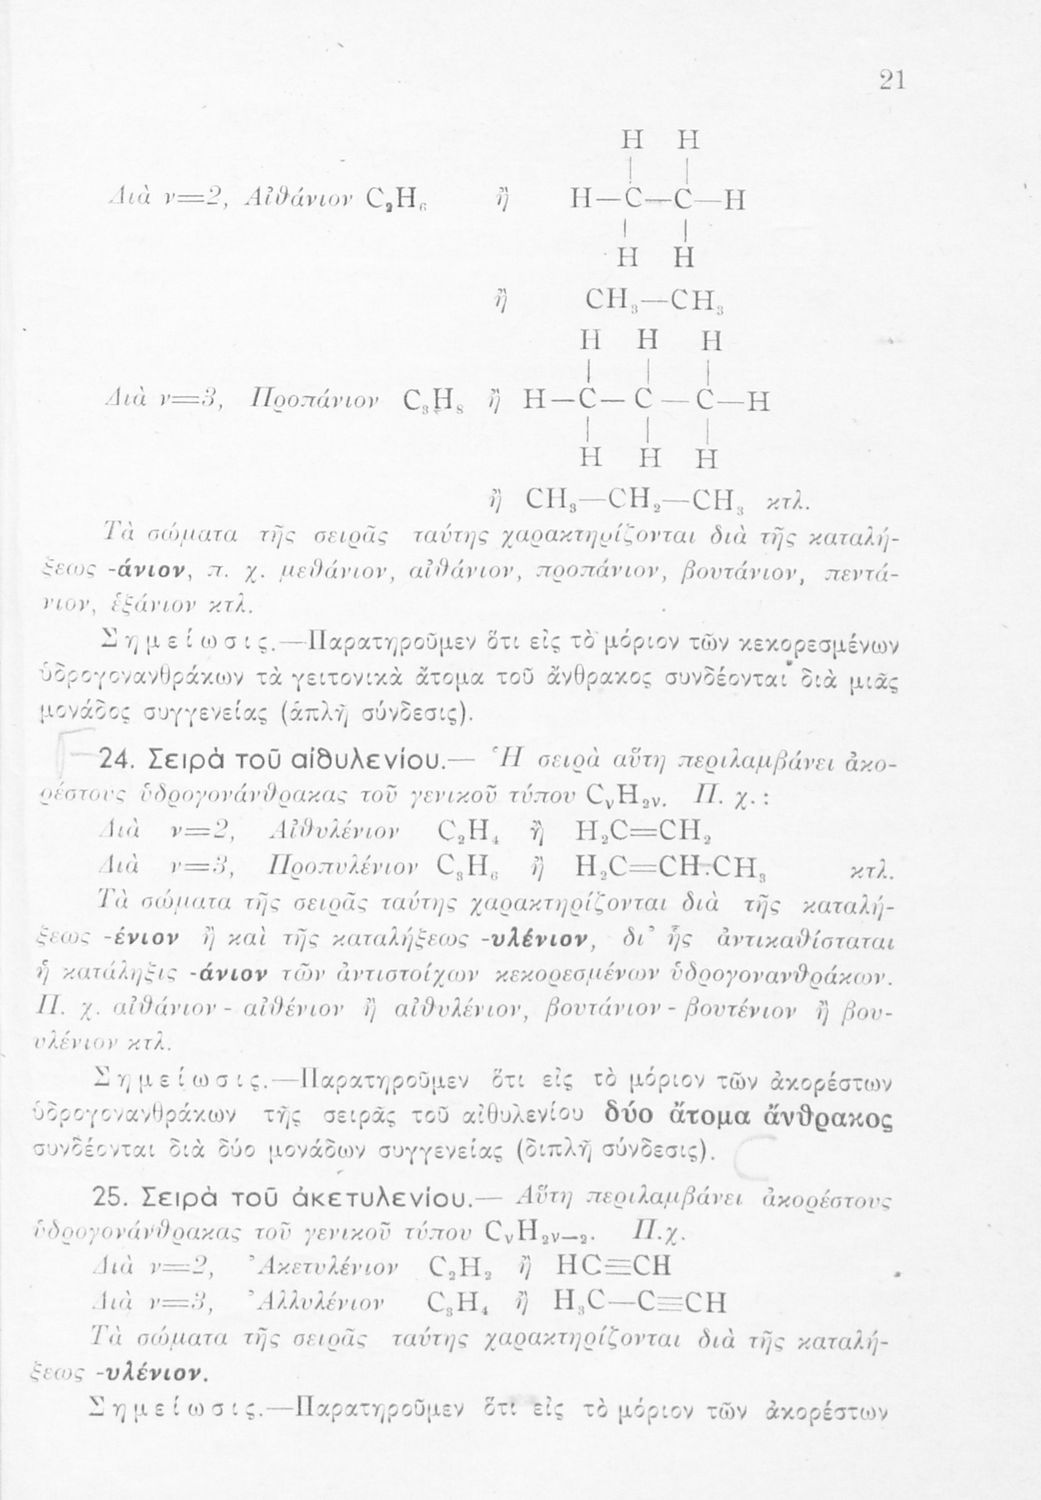 21
H H
| |
Διὰ ν=2, Αἰθάνιον C₂H₆ ἢ H—C—C—H
| |
H H
ἢ CH₃—CH₃
H H H
| | |
Διὰ ν=3, Προπάνιον C₃H₈ ἢ H—C—C—C—H
| | |
H H H
ἢ CH₃—CH₂—CH₃ κτλ.
Τὰ σώματα τῆς σειρᾶς ταύτης χαρακτηρίζονται διὰ τῆς καταλή-
ξεως -άνιον, π. χ. μεθάνιον, αἰθάνιον, προπάνιον, βουτάνιον, πεντά-
νιον, ἑξάνιον κτλ.
Σημείωσις.—Παρατηροῦμεν ὅτι εἰς τὸ μόριον τῶν κεκορεσμένων
ὑδρογονανθράκων τὰ γειτονικὰ ἄτομα τοῦ ἄνθρακος συνδέονται διὰ μιᾶς
μονάδος συγγενείας (ἁπλῆ σύνδεσις).
24. Σειρὰ τοῦ αἰθυλενίου.— Ἡ σειρὰ αὕτη περιλαμβάνει ἀκο-
ρέστους ὑδρογονάνθρακας τοῦ γενικοῦ τύπου CᵥH₂ᵥ. Π. χ. :
Διὰ ν=2, Αἰθυλένιον C₂H₄ ἢ H₂C=CH₂
Διὰ ν=3, Προπυλένιον C₃H₆ ἢ H₂C=CH-CH₃ κτλ.
Τὰ σώματα τῆς σειρᾶς ταύτης χαρακτηρίζονται διὰ τῆς καταλή-
ξεως -ένιον ἢ καὶ τῆς καταλήξεως -υλένιον, δι᾽ ἧς ἀντικαθίσταται
ἡ κατάληξις -άνιον τῶν ἀντιστοίχων κεκορεσμένων ὑδρογονανθράκων.
Π. χ. αἰθάνιον - αἰθένιον ἢ αἰθυλένιον, βουτάνιον - βουτένιον ἢ βου-
υλένιον κτλ.
Σημείωσις.—Παρατηροῦμεν ὅτι εἰς τὸ μόριον τῶν ἀκορέστων
ὑδρογονανθράκων τῆς σειρᾶς τοῦ αἰθυλενίου δύο ἄτομα ἄνθρακος
συνδέονται διὰ δύο μονάδων συγγενείας (διπλῆ σύνδεσις).
25. Σειρὰ τοῦ ἀκετυλενίου.— Αὕτη περιλαμβάνει ἀκορέστους
ὑδρογονάνθρακας τοῦ γενικοῦ τύπου CᵥH₂ᵥ₋₂. Π.χ.
Διὰ ν=2, Ἀκετυλένιον C₂H₂ ἢ HC≡CH
Διὰ ν=3, Ἀλλυλένιον C₃H₄ ἢ H₃C—C≡CH
Τὰ σώματα τῆς σειρᾶς ταύτης χαρακτηρίζονται διὰ τῆς καταλή-
ξεως -υλένιον.
Σημείωσις.—Παρατηροῦμεν ὅτι εἰς τὸ μόριον τῶν ἀκορέστων